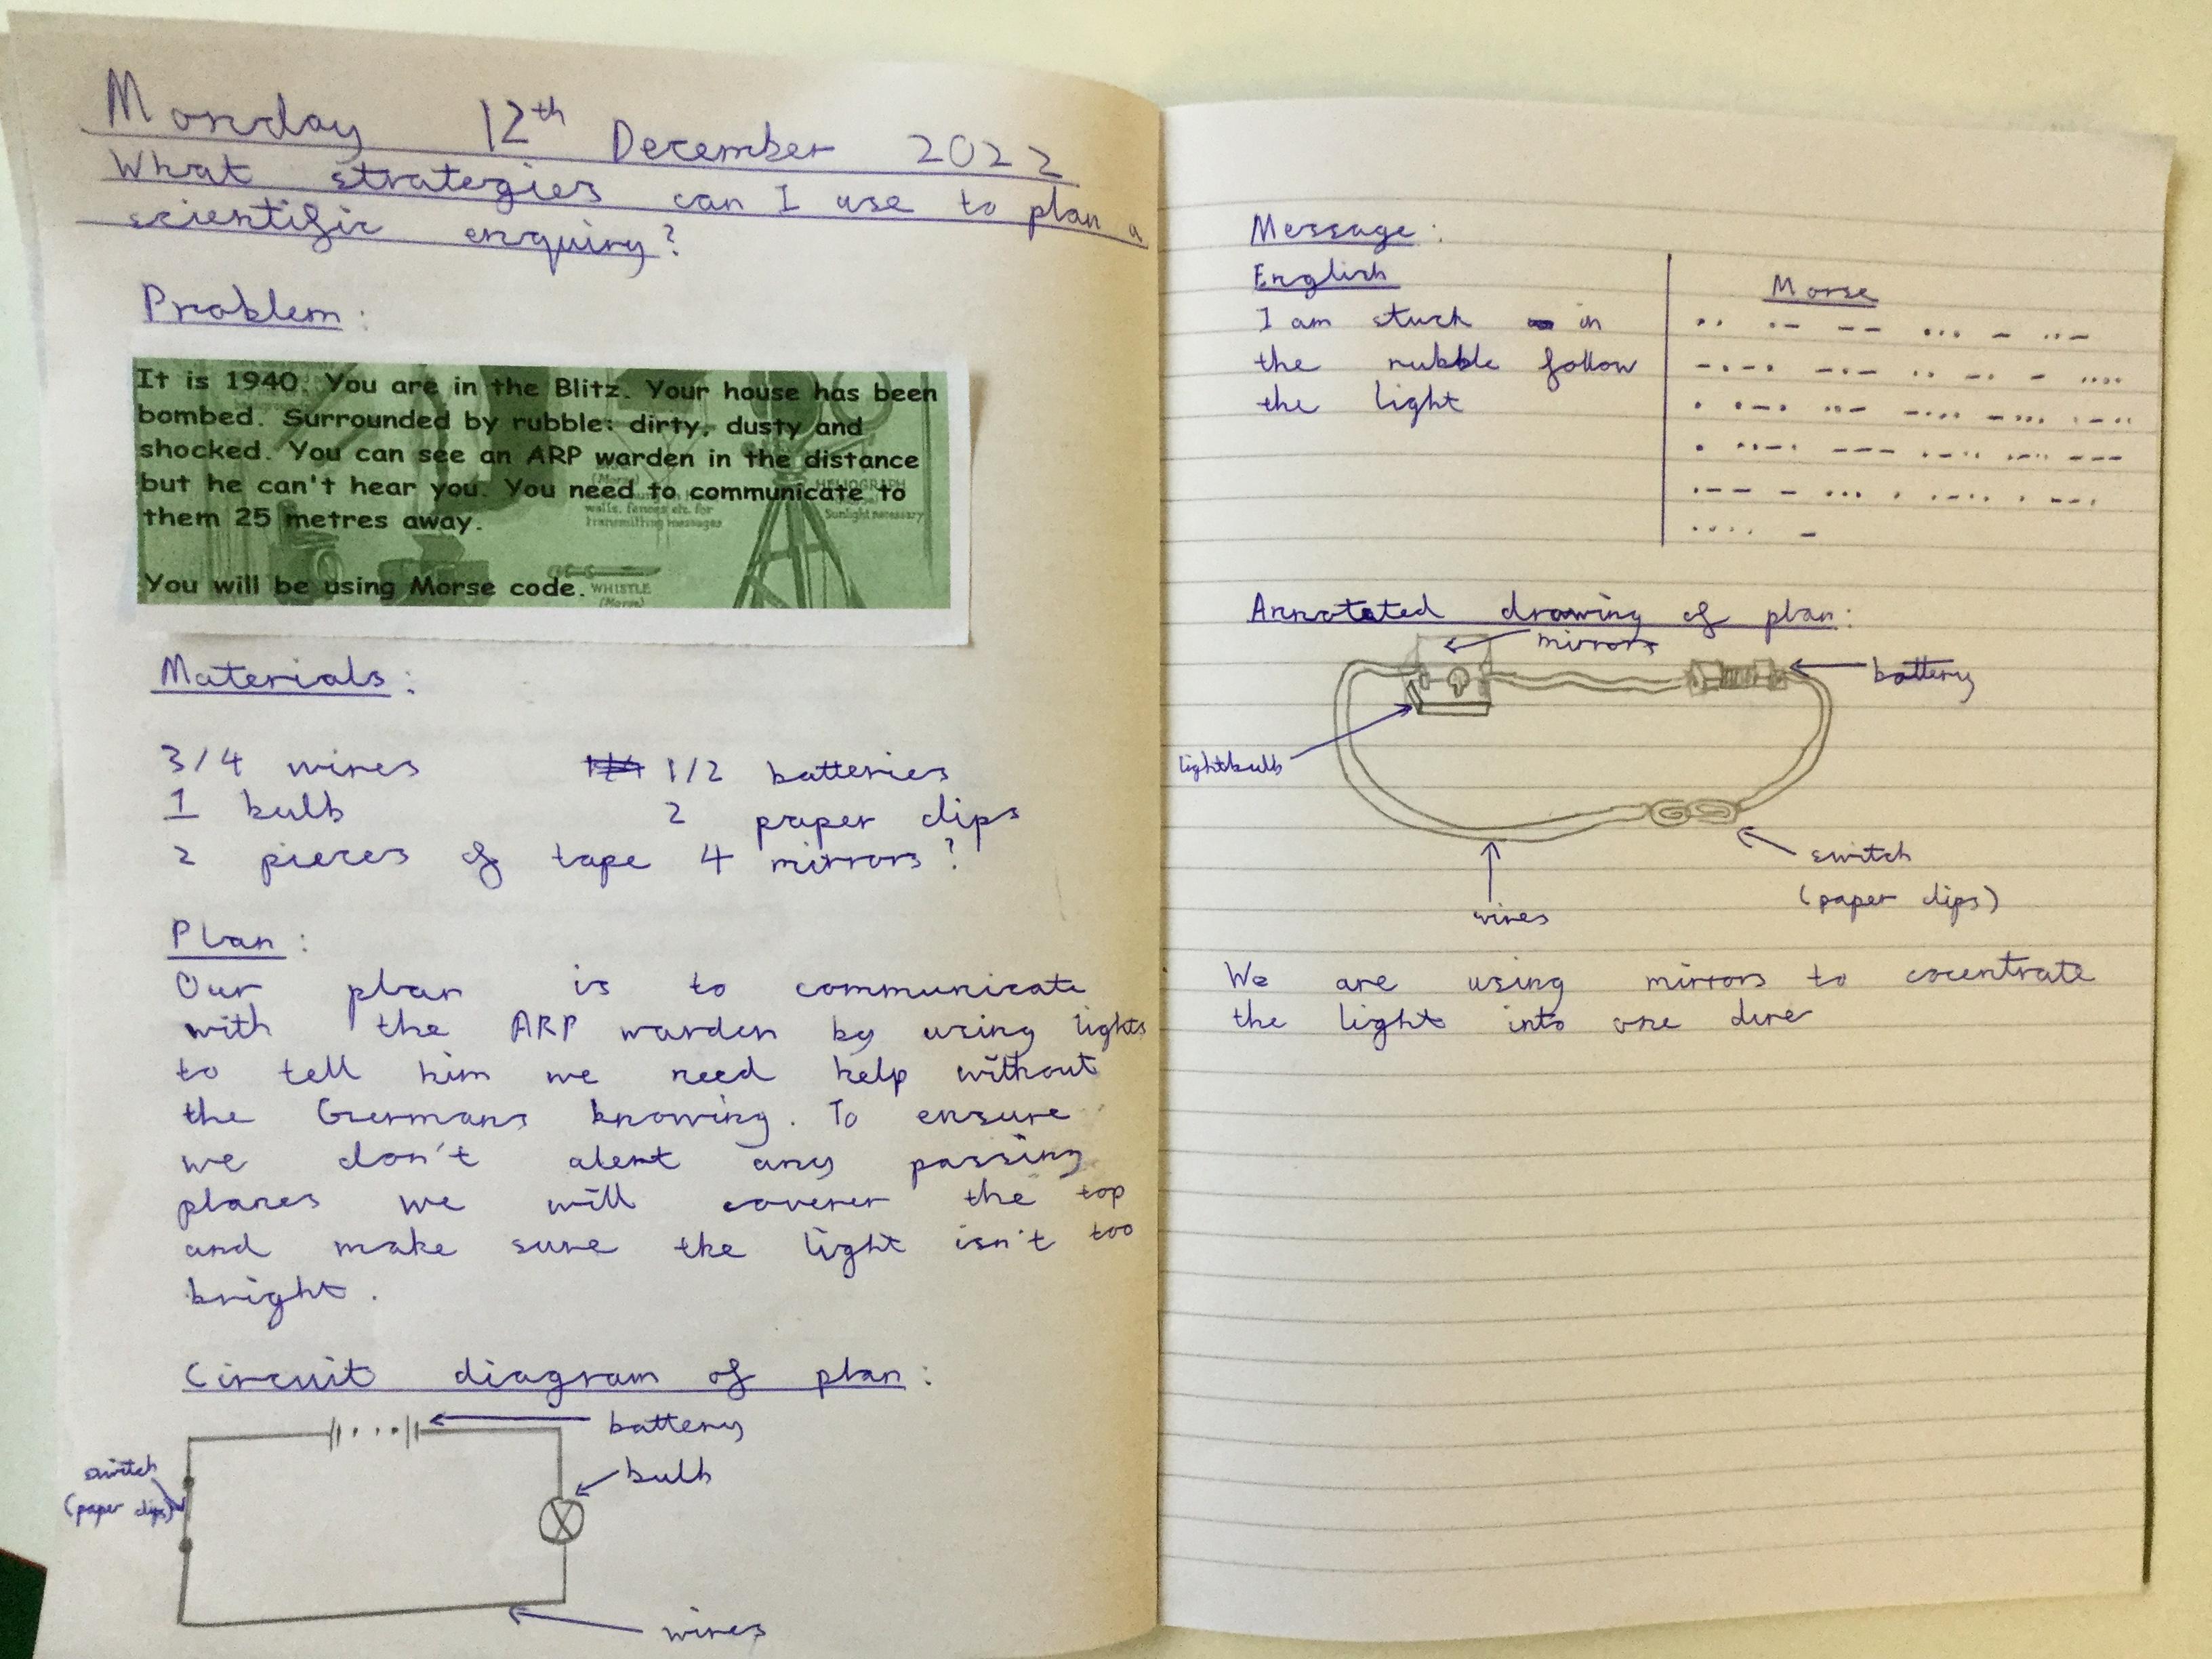 Monday 12th December 2022
What strategies can I use to plan a
scientific enquiry?
Problem:
It is 1940. You are in the Blitz. Your house has been
bombed. Surrounded by rubble: dirty, dusty and
shocked. You can see an ARP warden in the distance
but he can't hear you. You need to communicate to
them 25 metres away.
HELIOGRAPH
walls, fences etc. for
transmitting messages
Sunlight necessary
You will be using Morse code.
WHISTLE
(Morse)
Materials:
3/4 wires 1/2 batteries
1 bulb 2 paper clips
2 pieces of tape 4 mirrors?
Plan:
Our plan is to communicate
with the ARP warden by using lights
to tell him we need help without
the Germans knowing. To ensure
we don't alert any passing
planes we will coverer the top
and make sure the light isn't too
bright.
Circuit diagram of plan:
battery
bulb
switch
(paper clips)
wires
Message:
English
I am stuck in
the rubble follow
the light
Morse
.. .- -- ... - ..-
-.-. -.- .. -. - ....
. .-. ..- -... -... .-..
. ..-. --- .-.. .-.. ---
.-- - .... . .-.. .. --.
.... -
Annotated drawing of plan:
mirrors
battery
lightbulb
switch
(paper clips)
wires
We are using mirrors to cocentrate
the light into one dire